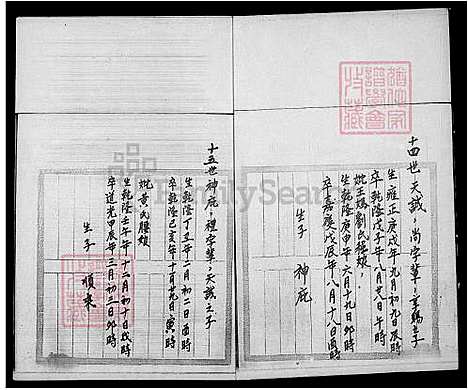 十四世天誠，尚字輩，
生雍正庚戌年九月初九日辰時
卒乾隆戊子年八月廿八日午時
妣王嫂劉氏穩娘，
生乾隆庚申年六月十九日卯時
卒嘉慶戊辰年八月十八日酉時
生子 神庇
十五世神庇，禮字輩，天誠之子
生乾隆丁丑年二月初二日酉時
卒乾隆己亥年十月廿九日寅時
妣黃氏腰娘
生乾隆壬午年十二月初十日戌時
卒道光甲辰年三月初三日卯時
生子 順來
FamilySearch